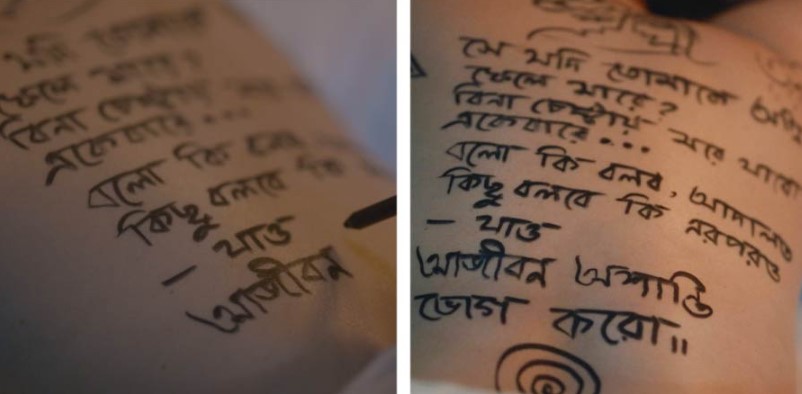 যদি তোমাকে
ফেলে মারে?
বিনা চেষ্টায়
একেবারে...
বলো কি
কিছু বলবে কি
— যাও
আজীবন
সে যদি তোমাকে
ফেলে মারে?
বিনা চেষ্টায় মরে যাবো
একেবারে...
বলো কি বলব, আদালত
কিছু বলবে কি এরপরও
— যাও
আজীবন অশান্তি
ভোগ করো॥